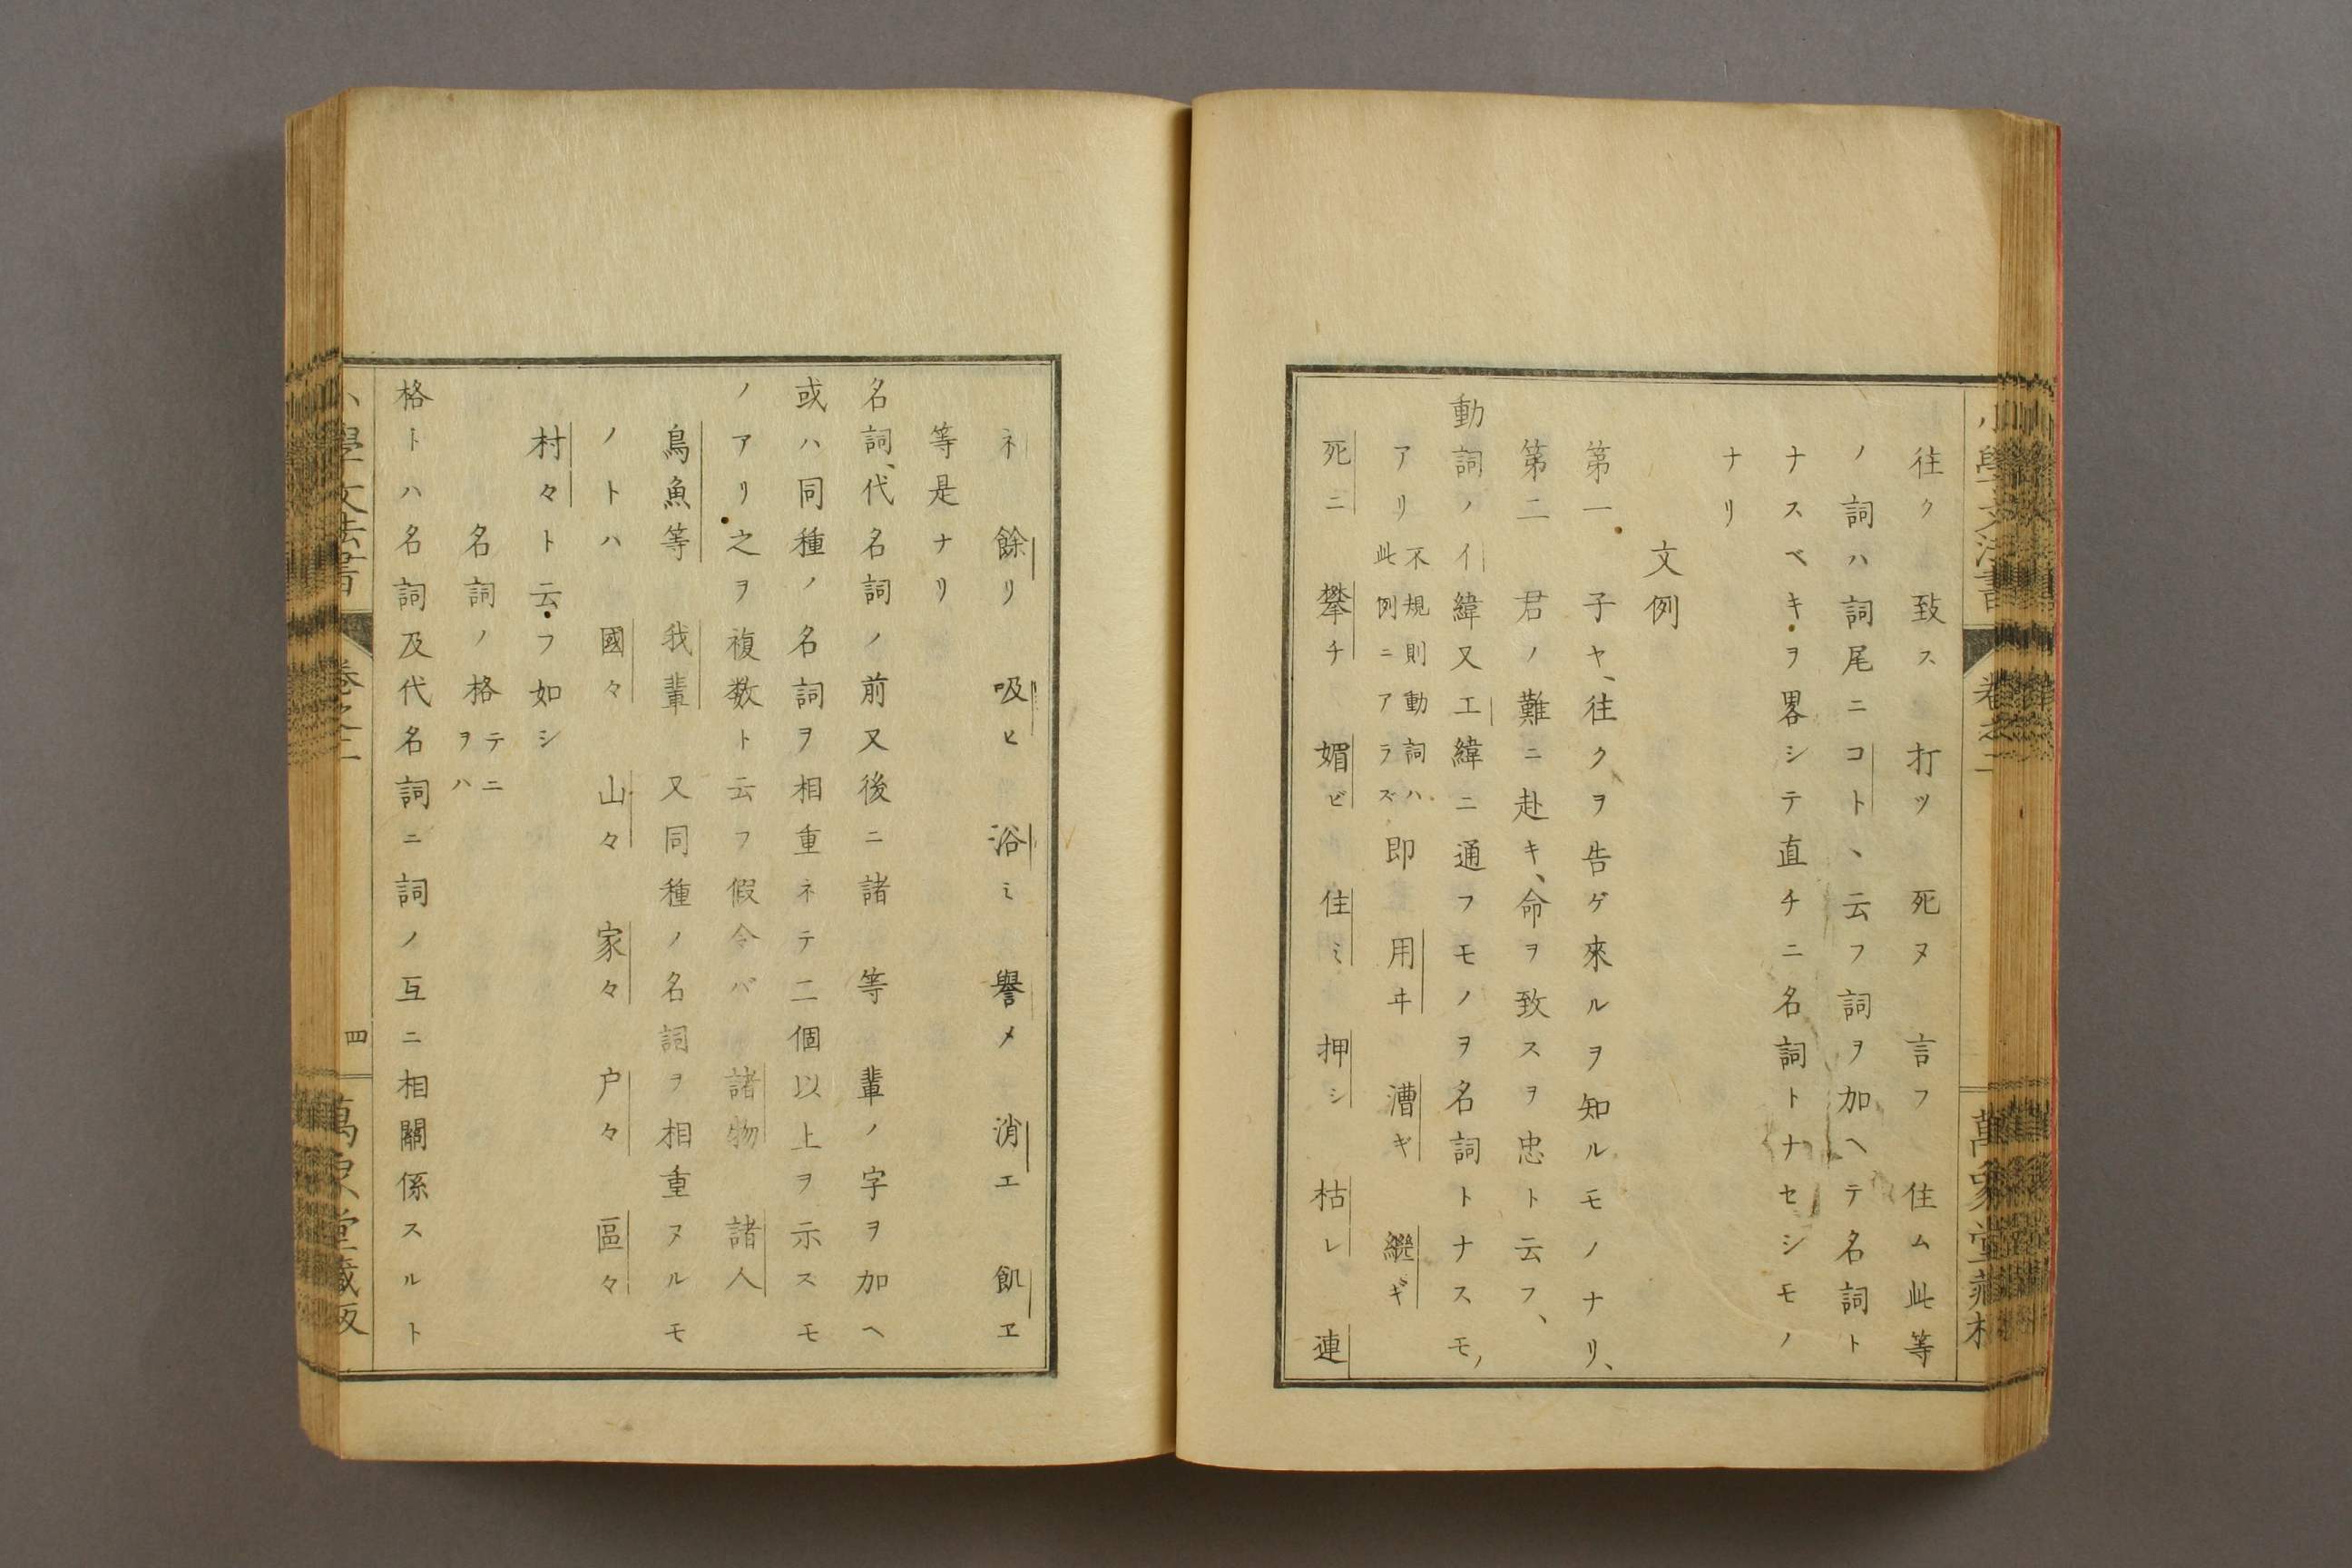 往ク 致ス 打ツ 死ヌ 言フ 住ム此等
ノ詞ハ詞尾ニコト、云フ詞ヲ加ヘテ名詞ト
ナスベキヲ畧シテ直チニ名詞トナセシモノ
ナリ
文例
第一 子ヤ、往クヲ告ゲ來ルヲ知ルモノナリ、
第二 君ノ難ニ赴キ、命ヲ致スヲ忠ト云フ、
動詞ノイ緯又エ緯ニ通フモノヲ名詞トナスモノ
アリ不規則動詞ハ此例ニアラズ即 用ヰ 漕ギ 繼ギ
死ニ 攀チ 媚ビ 住ミ 押シ 枯レ 連
ネ 餘リ 吸ヒ 浴ミ 譽メ 消エ 飢ヱ
等是ナリ
名詞、代名詞ノ前又後ニ諸 等 輩ノ字ヲ加ヘ
或ハ同種ノ名詞ヲ相重ネテ二個以上ヲ示スモ
ノアリ之ヲ複数ト云フ假令バ 諸物 諸人
鳥魚等 我輩 又同種ノ名詞ヲ相重ヌルモ
ノトハ 國々 山々 家々 户々 區々
村々ト云フ如シ
名詞ノ格テニヲハ
格トハ名詞及代名詞ニ詞ノ互ニ相關係スルト
四